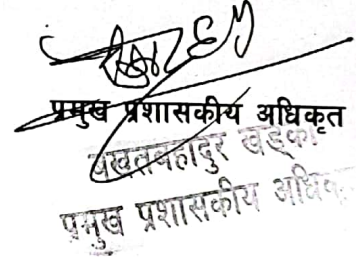 प्रमुख प्रशासकीय अधिकृत
बखतबहादुर खड्का
प्रमुख प्रशासकीय